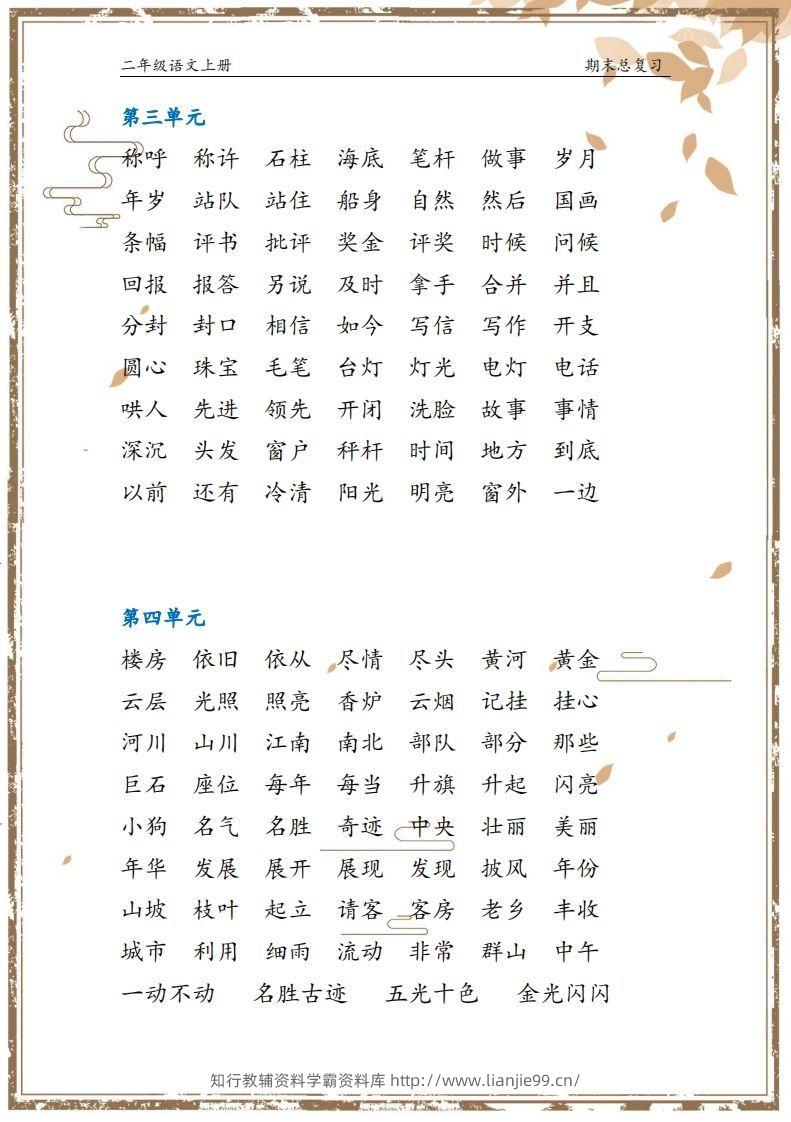 二年级语文上册 期末总复习
第三单元
称呼 称许 石柱 海底 笔杆 做事 岁月
年岁 站队 站住 船身 自然 然后 国画
条幅 评书 批评 奖金 评奖 时候 问候
回报 报答 另说 及时 拿手 合并 并且
分封 封口 相信 如今 写信 写作 开支
圆心 珠宝 毛笔 台灯 灯光 电灯 电话
哄人 先进 领先 开闭 洗脸 故事 事情
深沉 头发 窗户 秤杆 时间 地方 到底
以前 还有 冷清 阳光 明亮 窗外 一边
第四单元
楼房 依旧 依从 尽情 尽头 黄河 黄金
云层 光照 照亮 香炉 云烟 记挂 挂心
河川 山川 江南 南北 部队 部分 那些
巨石 座位 每年 每当 升旗 升起 闪亮
小狗 名气 名胜 奇迹 中央 壮丽 美丽
年华 发展 展开 展现 发现 披风 年份
山坡 枝叶 起立 请客 客房 老乡 丰收
城市 利用 细雨 流动 非常 群山 中午
一动不动 名胜古迹 五光十色 金光闪闪
知行教辅资料学霸资料库 http://www.lianjie99.cn/